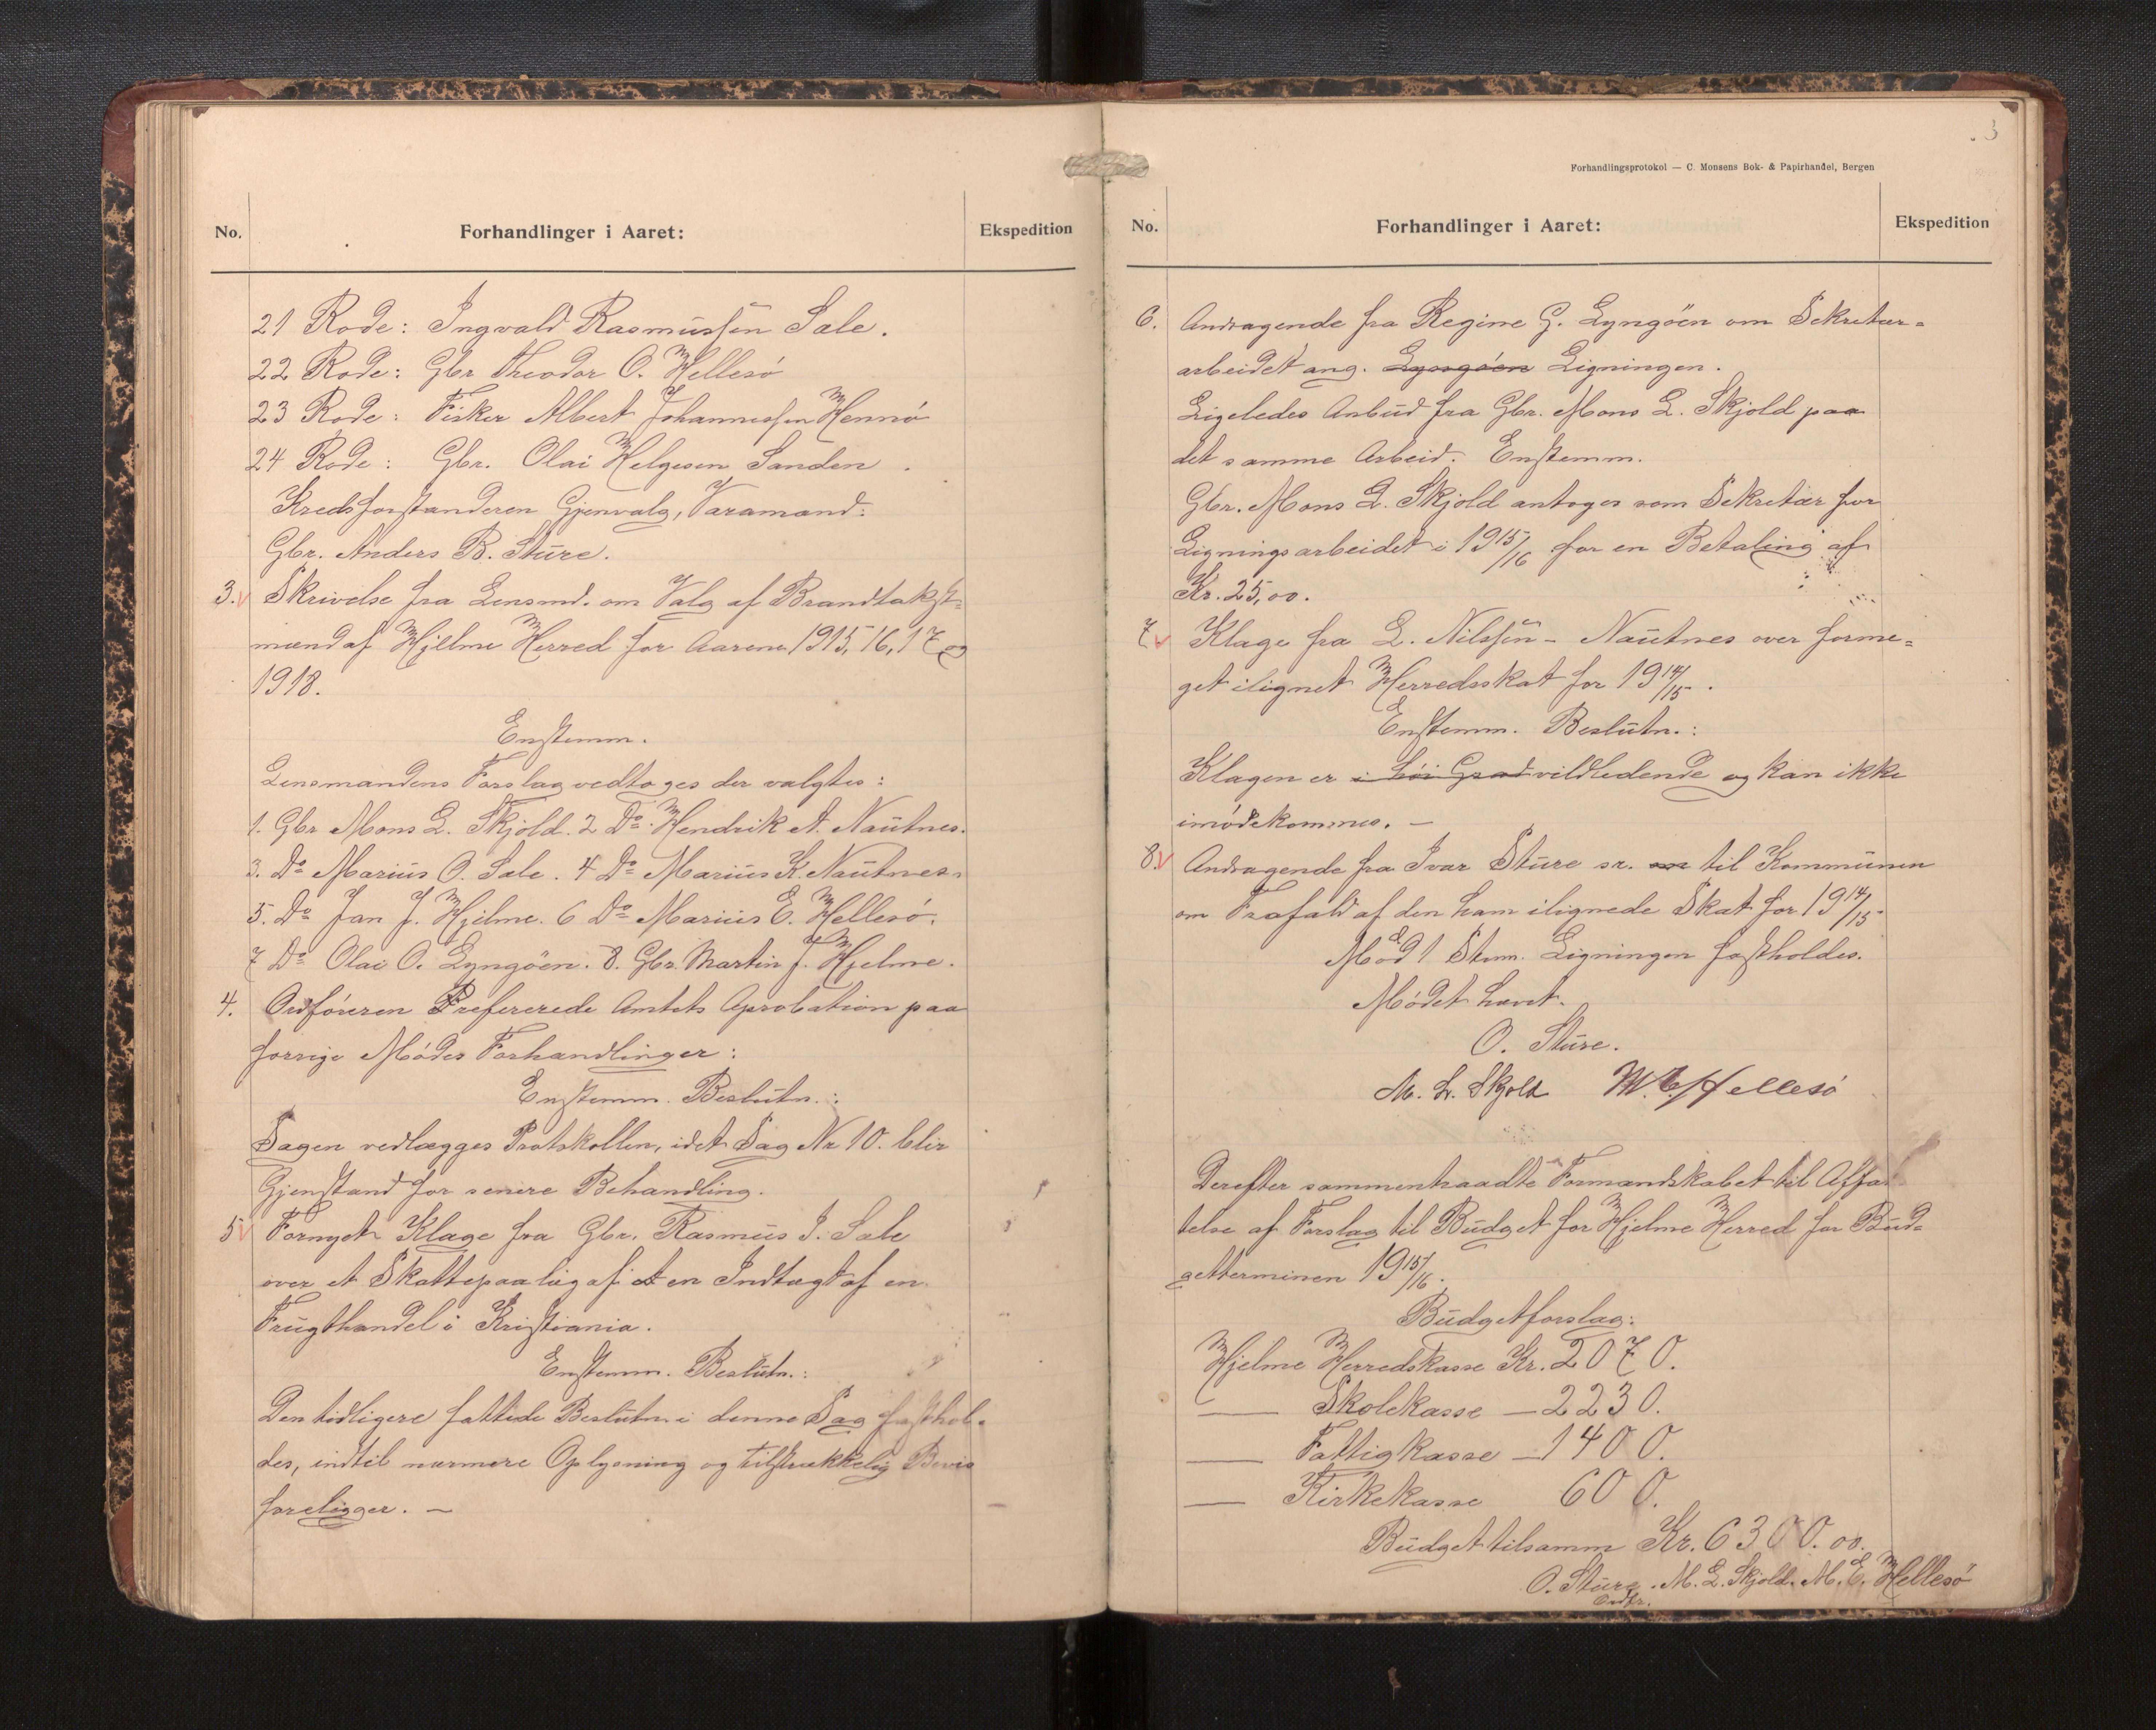 No.
Forhandlinger i Aaret:
Ekspedition
21 Rode: Ingvald Rasmussen Sale.
22 Rode: Gbr Theodor O. Hellesö
23 Rode: Fisker Albert Johannessen Hennö
24 Rode: Gbr. Olai Helgesen Sanden.
Kredsforstanderen Gjenvalg, Varamand:
Gbr. Anders B. Sture.
3. Skrivelse fra Lensmd. om Valg af Brandtakst-
mænd af Hjelme Herred for Aarene 1915, 16, 17 og
1918.
Enstemm.
Lensmandens Forslag vedtoges der valgtes:
1. Gbr Mons L. Skjold. 2 Do Hendrik A. Nautnes.
3. Do Marius O. Sale. 4 Do Marius K. Nautnes.
5. Do Jan J. Hjelme. 6 Do Marius E. Hellesö.
7 Do Olai O. Lyngöen. 8. Gbr. Martin J. Hjelme.
4. Ordföreren Prefererede Amtets Aprobation paa
forrige Mödes Forhandlinger:
Enstemm. Beslutn.:
Sagen vedlægges Protokollen, idet Sag Nr 10. blir
Gjenstand for senere Behandling.
5 Fornyet Klage fra Gbr. Rasmus I. Sale
over et Skattepaalæg af et en Indtægt af en
Frugthandel i Kristiania.
Enstemm. Beslutn.:
Den tidligere fattede Beslutn i denne Sag fasthol-
des, indtil nærmere Oplysning og tilstrækkelig Bevis
foreligger. —
3
Forhandlingsprotokol — C. Monsens Bok- & Papirhandel, Bergen
No.
Forhandlinger i Aaret:
Ekspedition
6. Andragende fra Regine G. Lyngöen om Sekretær-
arbeidet ang. Lyngöen Ligningen.
Ligeledes Anbud fra Gbr. Mons L. Skjold paa
det samme Arbeid. Enstemm.
Gbr. Mons L. Skjold antoges som Sekretær for
Ligningsarbeidet i 1915/16 for en Betaling af
Kr. 25,00.
7 Klage fra L. Nilssen - Nautnes over forme-
get ilignet Herredsskat for 1914/15.
Enstemm. Beslutn.:
Klagen er i höi Grad vildledende og kan ikke
imödekommes. —
8 Andragende fra Ivar Sture sr. om til Kommunen
om Frafald af den ham ilignede Skat for 1914/15
Mod 1 Stem. Ligningen fastholdes.
Mödet hævet.
O. Sture.
M. L. Skjold M. E. Hellesö
Derefter sammentraadte Formandskabet til Affat
telse af Forslag til Budget for Hjelme Herred for Bud-
getterminen 1915/16.
Budgetforslag:
Hjelme Herredskasse Kr. 2070.
— Skolekasse — 2230.
— Fattigkasse — 1400.
— Kirkekasse 600.
Budget tilsamm Kr. 6300.00.
O. Sture. M. L. Skjold. M. E. Hellesö
Ordfr.